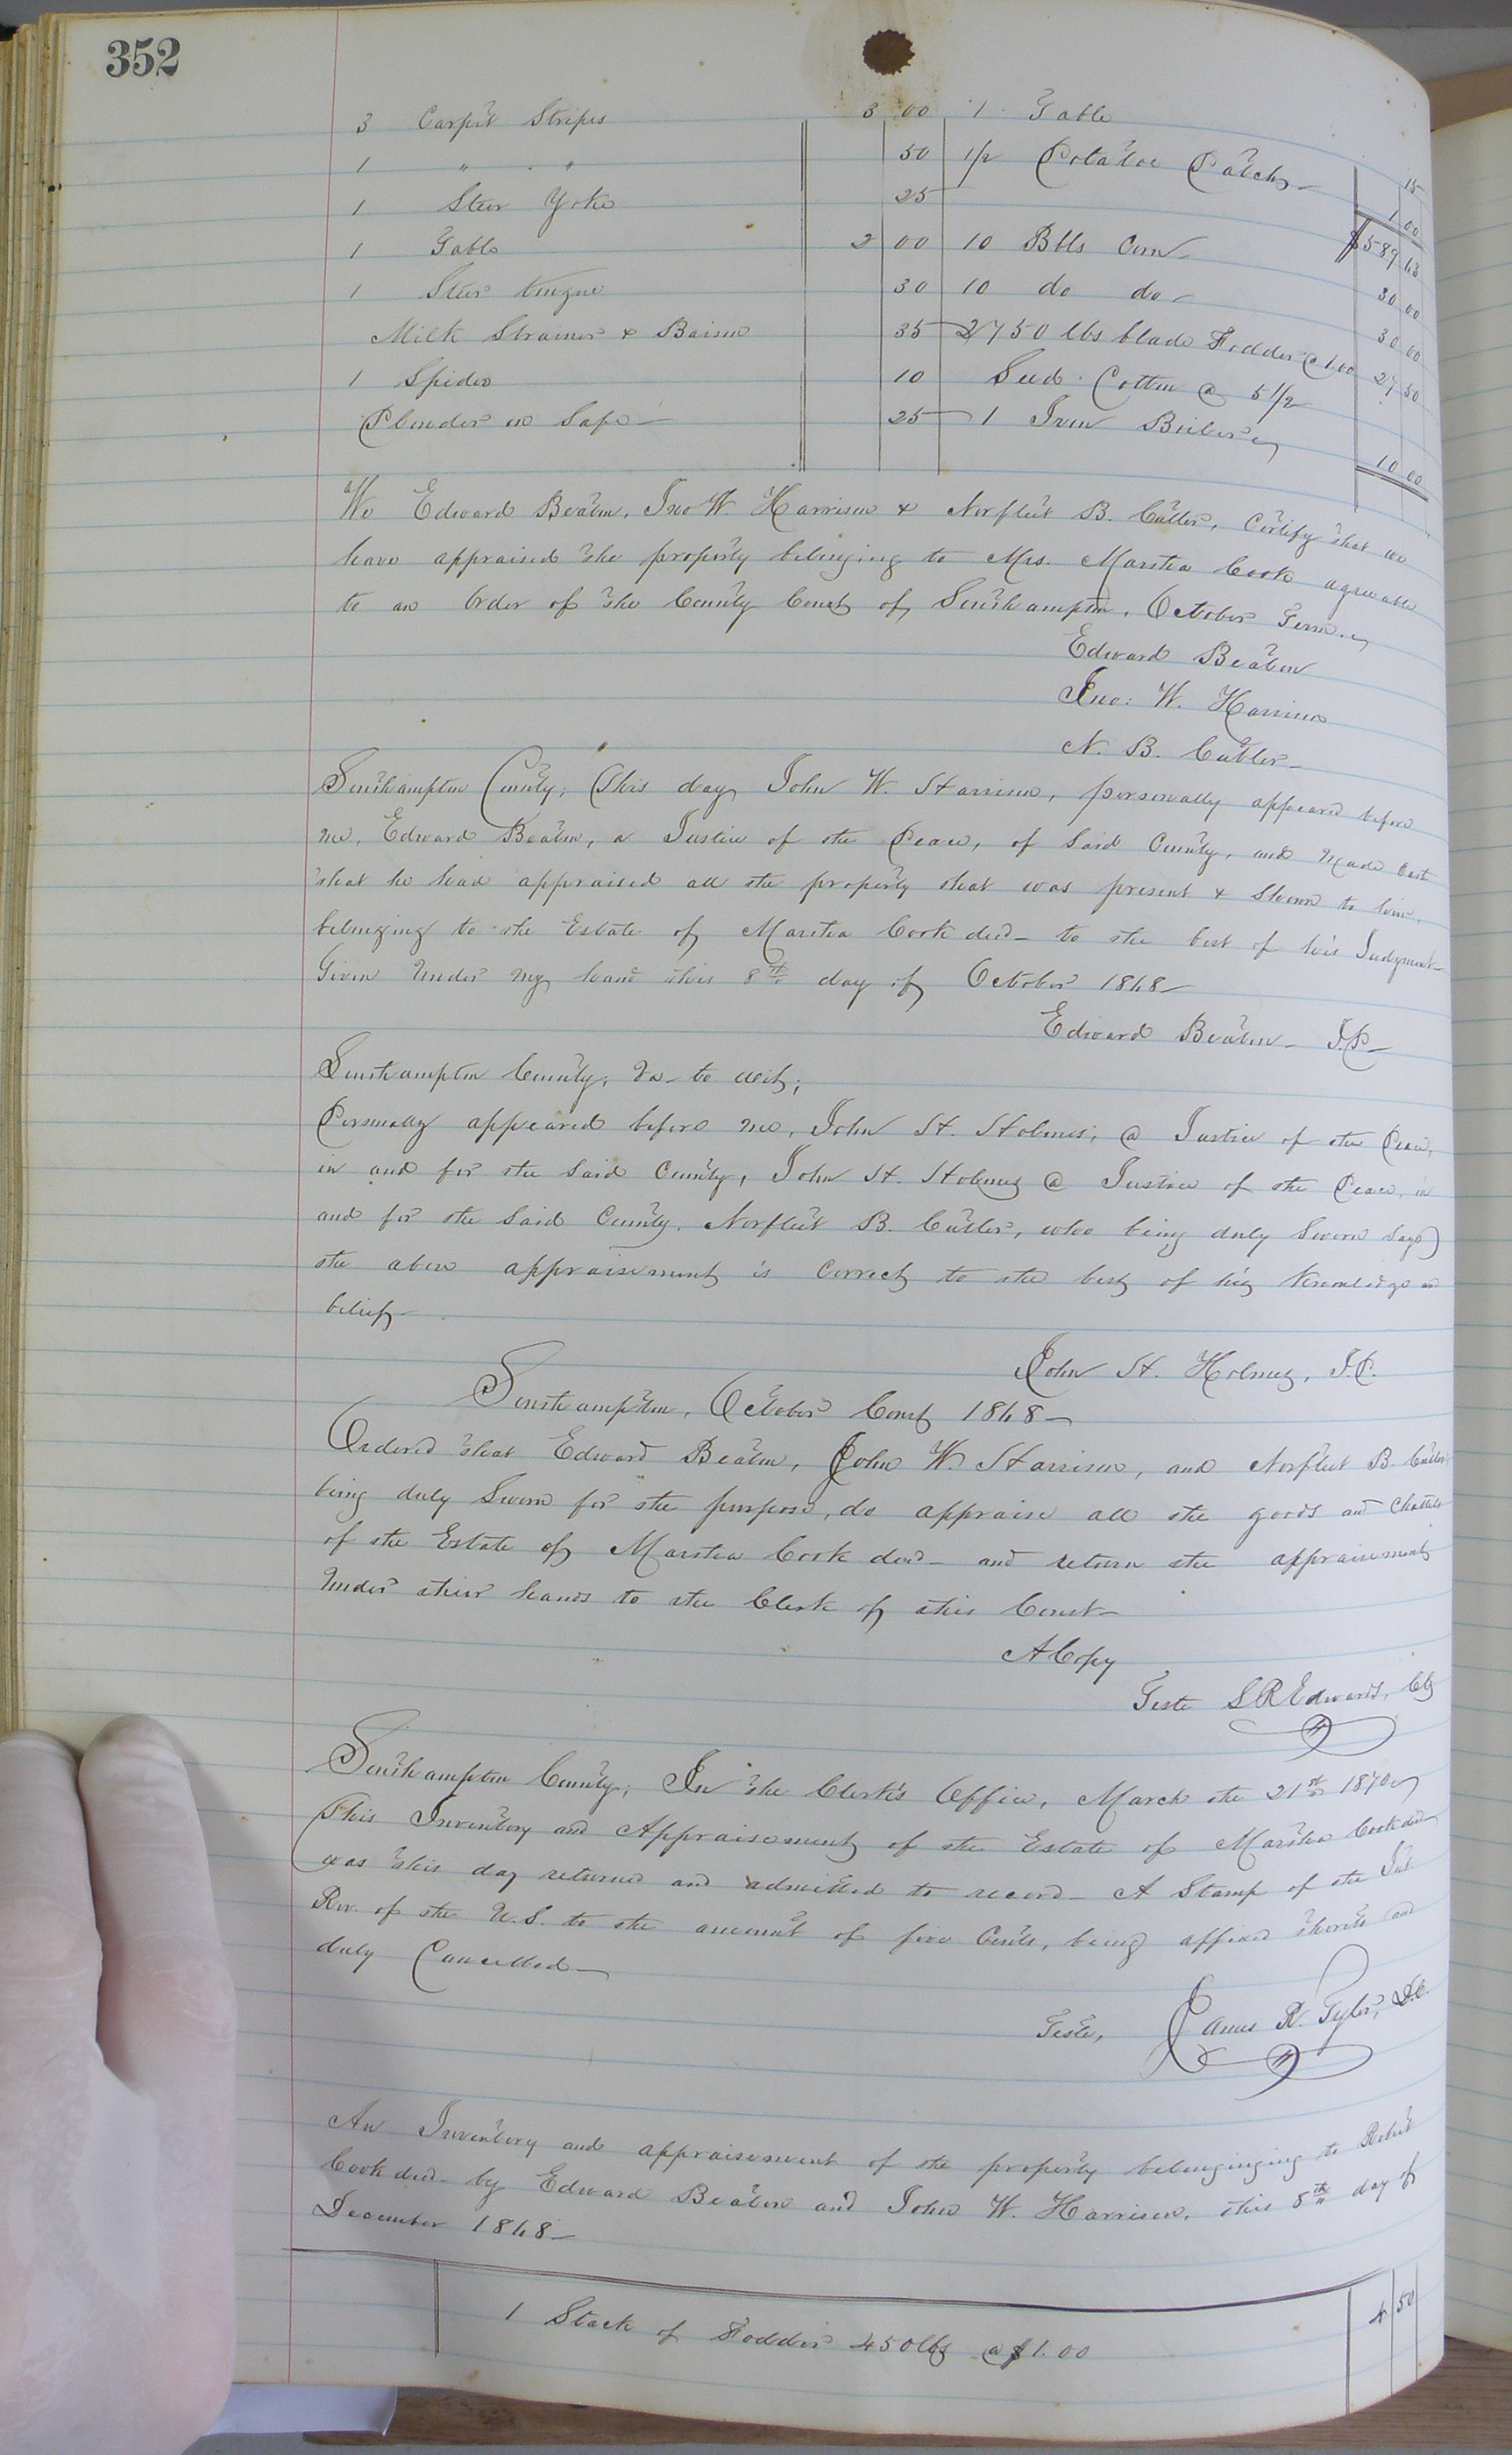 352
3 Carpet Stripes 3 00 1 Table 15
1 " " 50 1/2 Potatoe Patch 1 00
1 Steer Yoke 25 $589 63
1 Table 2 00 10 Bbls Corn 30 00
1 Steer tongue 30 10 do do 30 00
Milk Strainer & Baisin 35 2750 lbs blade Fodder @ 1.00 27 50
1 Spider 10 Seed Cotton @ 5 1/2
Plunder in Safe 25 1 Iron Boiler 10 00
We Edward Beaton, Jno W. Harrison & Norfleet B. Cutler, Certify that we
have appraised the property belonging to Mrs. Martha Cook agreeable
to an Order of the County Court of Southampton, October Term.
Edward Beaton
Jno: W. Harrison
N. B. Cutler
Southampton County; This day John W. Harrison, personally appeared before
me, Edward Beaton, a Justice of the Peace, of Said County, and Made Oath
that he had appraised all the property that was present & Shown to him,
belonging to the Estate of Martha Cook decd to the best of his Judgment
Given Under my hand this 8th day of October 1868
Edward Beaton J.P.
Southampton County, Va to wit;
Personally appeared before me, John H. Holmes, a Justice of the Peace,
in and for the Said County, John H. Holmes a Justice of the Peace, in
and for the Said County, Norfleet B. Cutler, who being duly Sworn Says
the above appraisement is Correct to the best of his Knowledge and
belief
John H. Holmes, J.P.
Southampton, October Court 1868
Ordered that Edward Beaton, John W. Harrison, and Norfleet B. Cutler
being duly Sworn for the purpose, do appraise all the goods and Chattels
of the Estate of Martha Cook decd and return the appraisement
Under their hands to the Clerk of this Court
A Copy
Teste S R Edwards, Clk
Southampton County; In the Clerk's Office, March the 21st 1870
This Inventory and Appraisement of the Estate of Martha Cook decd
was this day returned and admitted to record A Stamp of the Int
Rev. of the U.S. to the amount of five Cents, being affixed thereto and
duly Cancelled
Teste, James R. Tyler, D.C.
An Inventory and appraisement of the property belonginging to Robert
Cook decd by Edward Beaton and John W. Harrison, this 8th day of
December 1868
1 Stack of Fodder 450 lbs @ $1.00 4 50